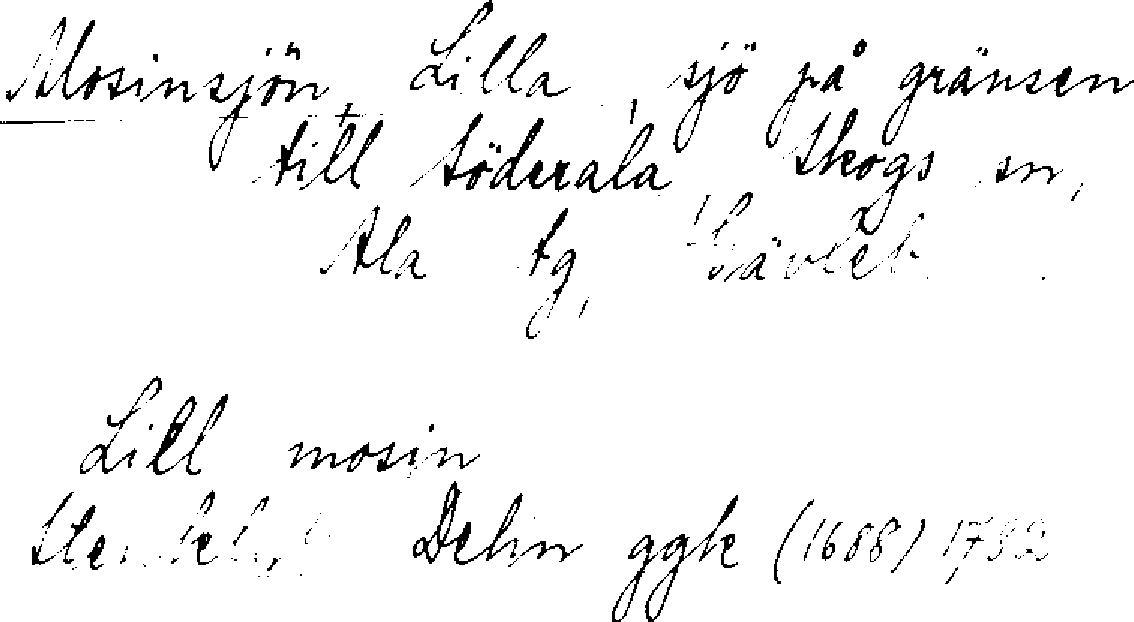 Mosinsjön, Lilla, sjö på gränsen
till Söderala, Skogs sn,
Ala tg,
Lill mosin
Dehn ggk (1688) 1782